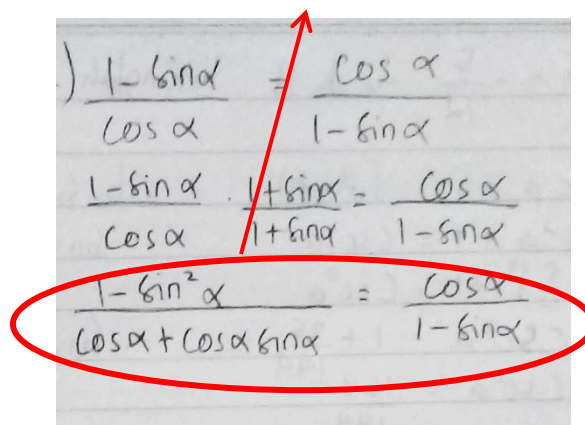 .) (1 - sin α)/(cos α) = (cos α)/(1 - sin α)
(1 - sin α)/(cos α) · (1 + sin α)/(1 + sin α) = (cos α)/(1 - sin α)
(1 - sin² α)/(cos α + cos α sin α) = (cos α)/(1 - sin α)